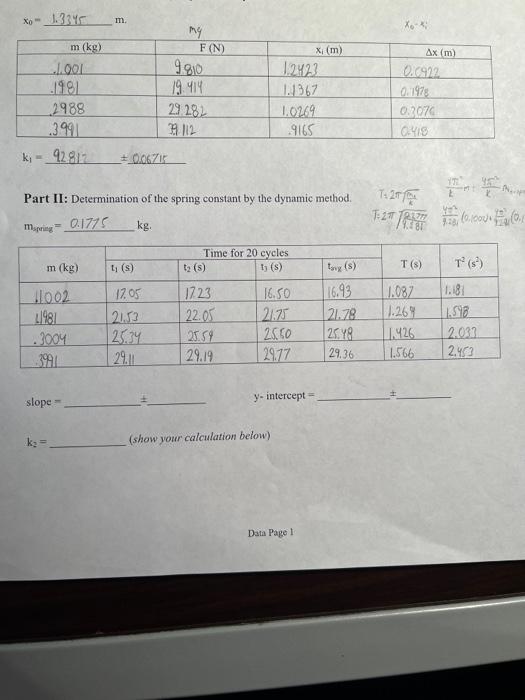 x₀ = 1.3345 m.
mg x₀-xᵢ
m (kg) F (N) xᵢ (m) Δx (m)
.1001 .9810 1.2423 0.0922
.1981 19.414 1.1367 0.1978
.2988 29.282 1.0269 0.3076
.3991 39.112 .9165 0.418
k₁ = 92812 ± 0.06715
Part II: Determination of the spring constant by the dynamic method.
T=2π
mspring = 0.1775 kg.
T=2π
Time for 20 cycles
m (kg) t₁ (s) t₂ (s) t₃ (s) tavg (s) T (s) T² (s²)
.1002 17.05 17.23 16.50 16.93 1.087 1.181
.1981 21.53 22.05 21.75 21.78 1.269 1.598
.3004 25.34 25.59 25.50 25.48 1.426 2.033
.3991 29.11 29.19 29.77 29.36 1.566 2.453
slope = ± y- intercept = ±
k₂ = (show your calculation below)
Data Page 1